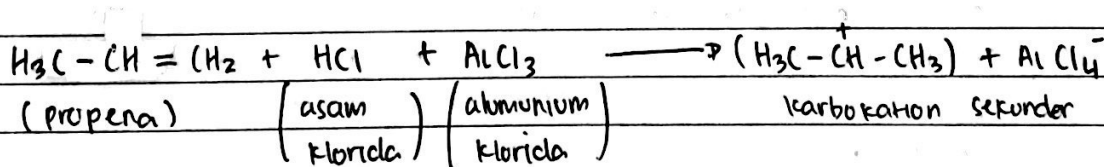 H₃C - CH = CH₂ + HCl + AlCl₃ → (H₃C - C⁺H - CH₃) + AlCl₄⁻
(propena) (asam klorida) (alumunium klorida) karbokation sekunder